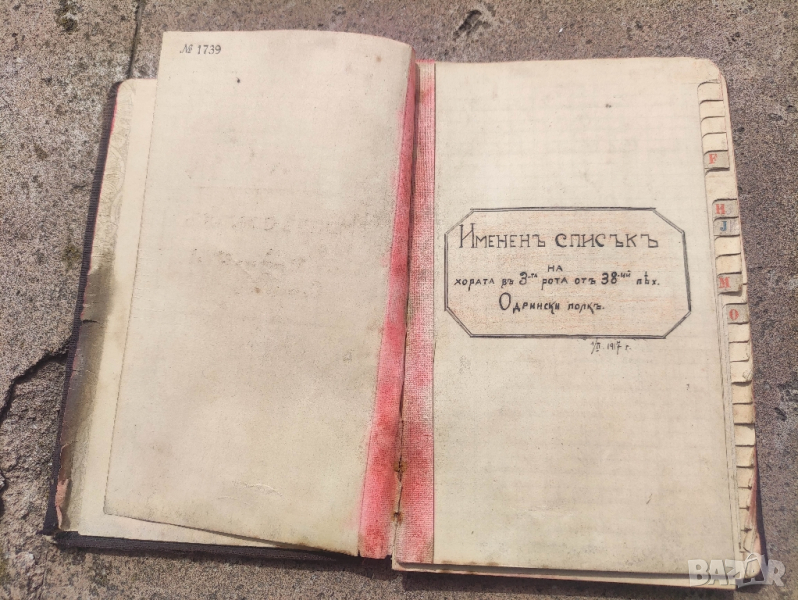 № 1739
Имененъ списъкъ
на
хората въ 3-та рота отъ 38-ий пѣх.
Одрински полкъ.
1917 г.
F
H
J
M
O
BAZAR